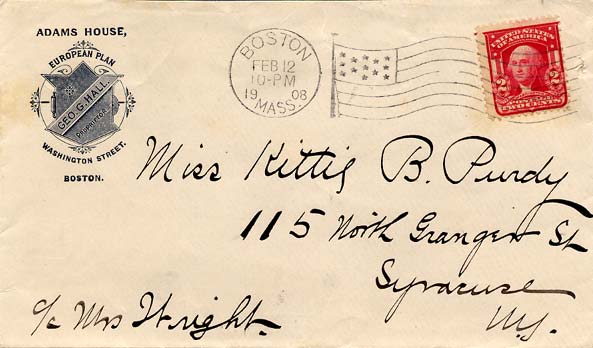 ADAMS HOUSE,
EUROPEAN PLAN
GEO. G. HALL.
PROPRIETOR.
WASHINGTON STREET.
BOSTON.
BOSTON
FEB 12
10-PM
19 08
MASS.
UNITED STATES
OF AMERICA
2 2
POSTAGE
TWO CENTS
Miss Kittie B. Purdy
115 North Granger St
Syracuse
N.Y.
c/o Mrs Wright.